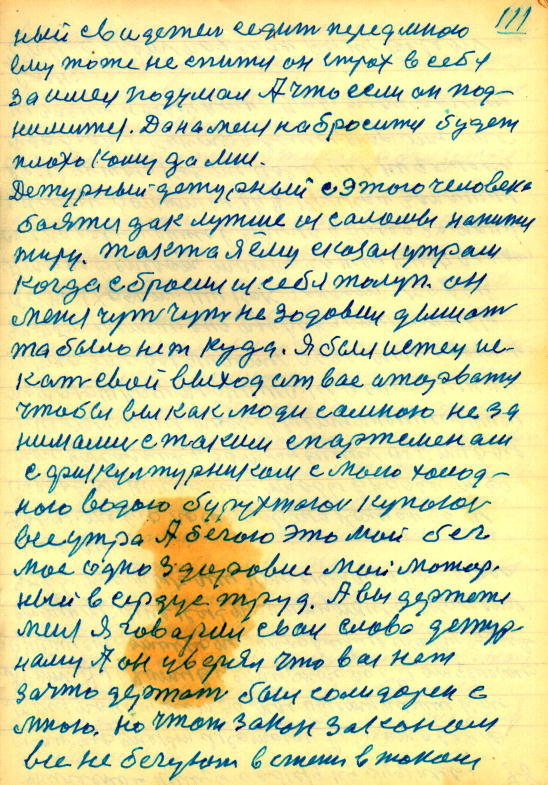 111
ный свидетел седит передмною
ему тоже не спится он страх в себе
заимел подумал А что если он под-
нимится. Да на меня набросится будет
плохо кому да мне.
Дежурный дежурный с этого человека
боятся дак лутше и саломы напитки
жиру. так та я ему сказал утрам
когда сбросил и себя толуп. он
меня чут чут не задовил дышат
та было нет куда. Я был истец ис-
кат свой выход от вас аторватся
чтобы вы как люди самною не за
нималис с таким спартсменам
с физкултурником с моею холод-
ною водою бурухтаюс купаюс
все утра А бегаю это мой бег
мое одно здоровие мой мотор-
ный в серце труд. А вы держите
меня я говарил свои слова дежур-
наму А он уверял что вас нет
за что держат был солидарен с
мною. но чтож закон законам
все не бегуют в степи в таком